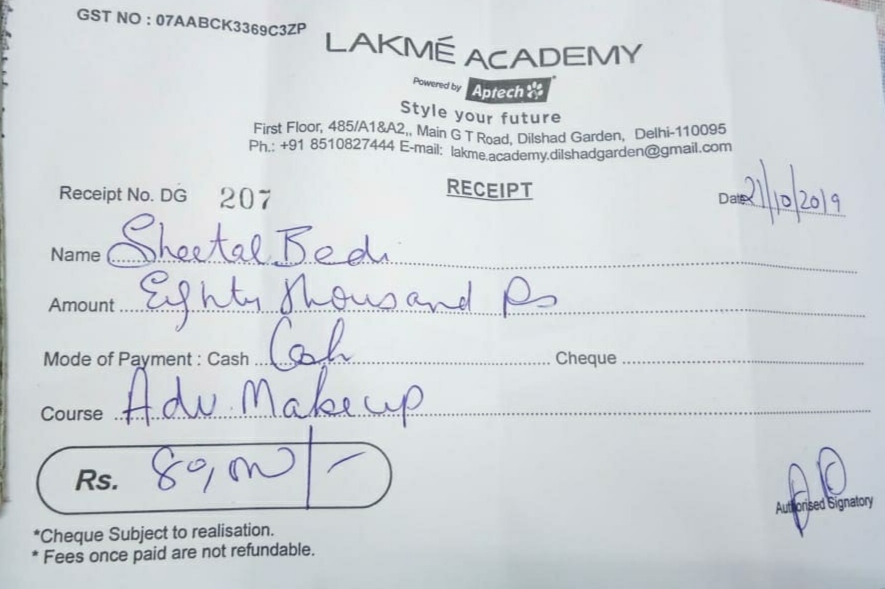 GST NO : 07AABCK3369C3ZP
LAKMÉ ACADEMY
Powered by Aptech
Style your future
First Floor, 485/A1&A2,, Main G T Road, Dilshad Garden, Delhi-110095
Ph.: +91 8510827444 E-mail: lakme.academy.dilshadgarden@gmail.com
Receipt No. DG 207 RECEIPT Date 21/10/2019
Name Sheetal Bedi
Amount Eighty thousand Rs
Mode of Payment : Cash Cash Cheque
Course Adv. Makeup
Rs. 80,000/-
Authorised Signatory
*Cheque Subject to realisation.
* Fees once paid are not refundable.